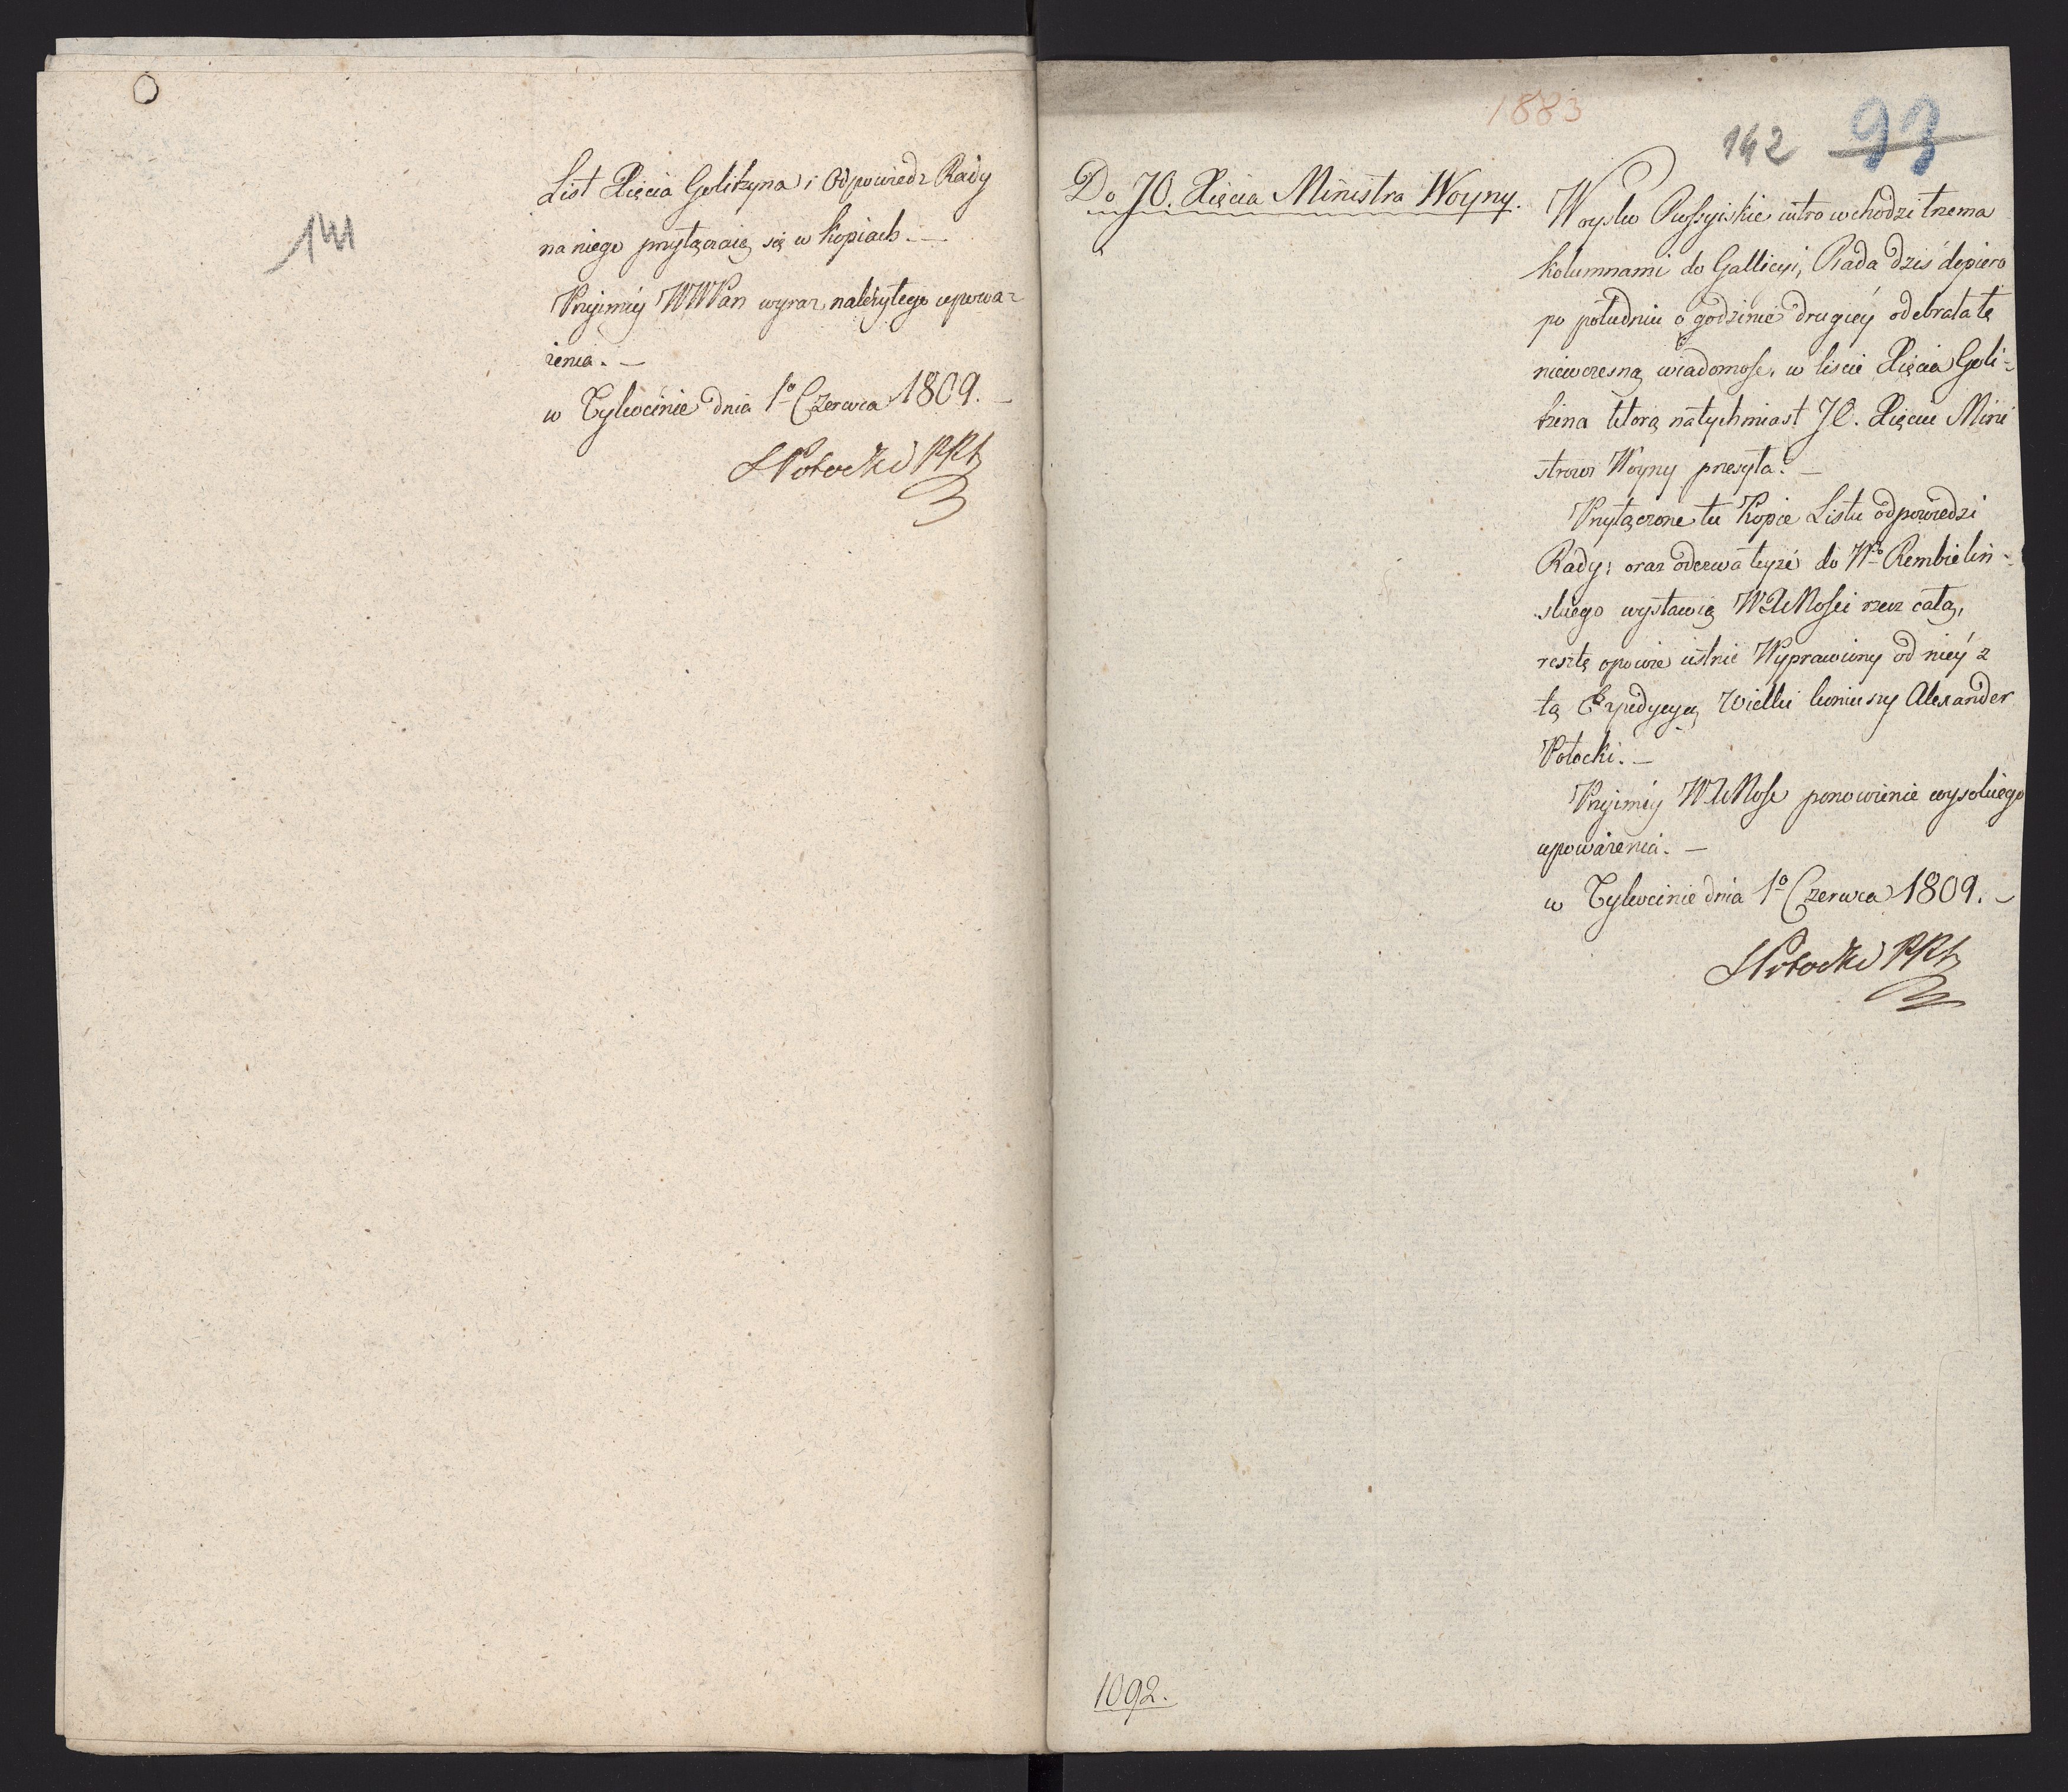 141
List Xięcia Golitzyna i Odpowiedz Rady
na niego przyłączaią się w kopiach. —
Przyimiy WWPan wyraz należytego upowa-
żenia. —
w Tykocinie dnia 1º Czerwca 1809. —
SPotocki PRS
1883
142 93
Do JO. Xięcia Ministra Woyny.
Woysko Rossyiskie iutro wchodzi trzema
kolumnami do Gallicyi, Rada dziś dopiero
po południu o godzinie drugiéy odebrała tę
niewczesną wiadomość, w liście Xięcia Goli-
tzina którą natychmiast JO. Xięciu Mini
strowi Woyny przesyła. —
Przyłączone tu Kopie Listu odpowiedzi
Rady; oraz odezwa teyże do Wº Rembieliń-
skiego wystawią WXMości rzecz całą,
resztę opowie ustnie Wyprawiony od niéy z
tą Expedycyą Wielki koniuszy Alexander
Potocki. —
Przyimiy WXMość ponowienie wysokiego
upoważenia. —
w Tykocinie dnia 1º Czerwca 1809. —
SPotocki PRS
1092.